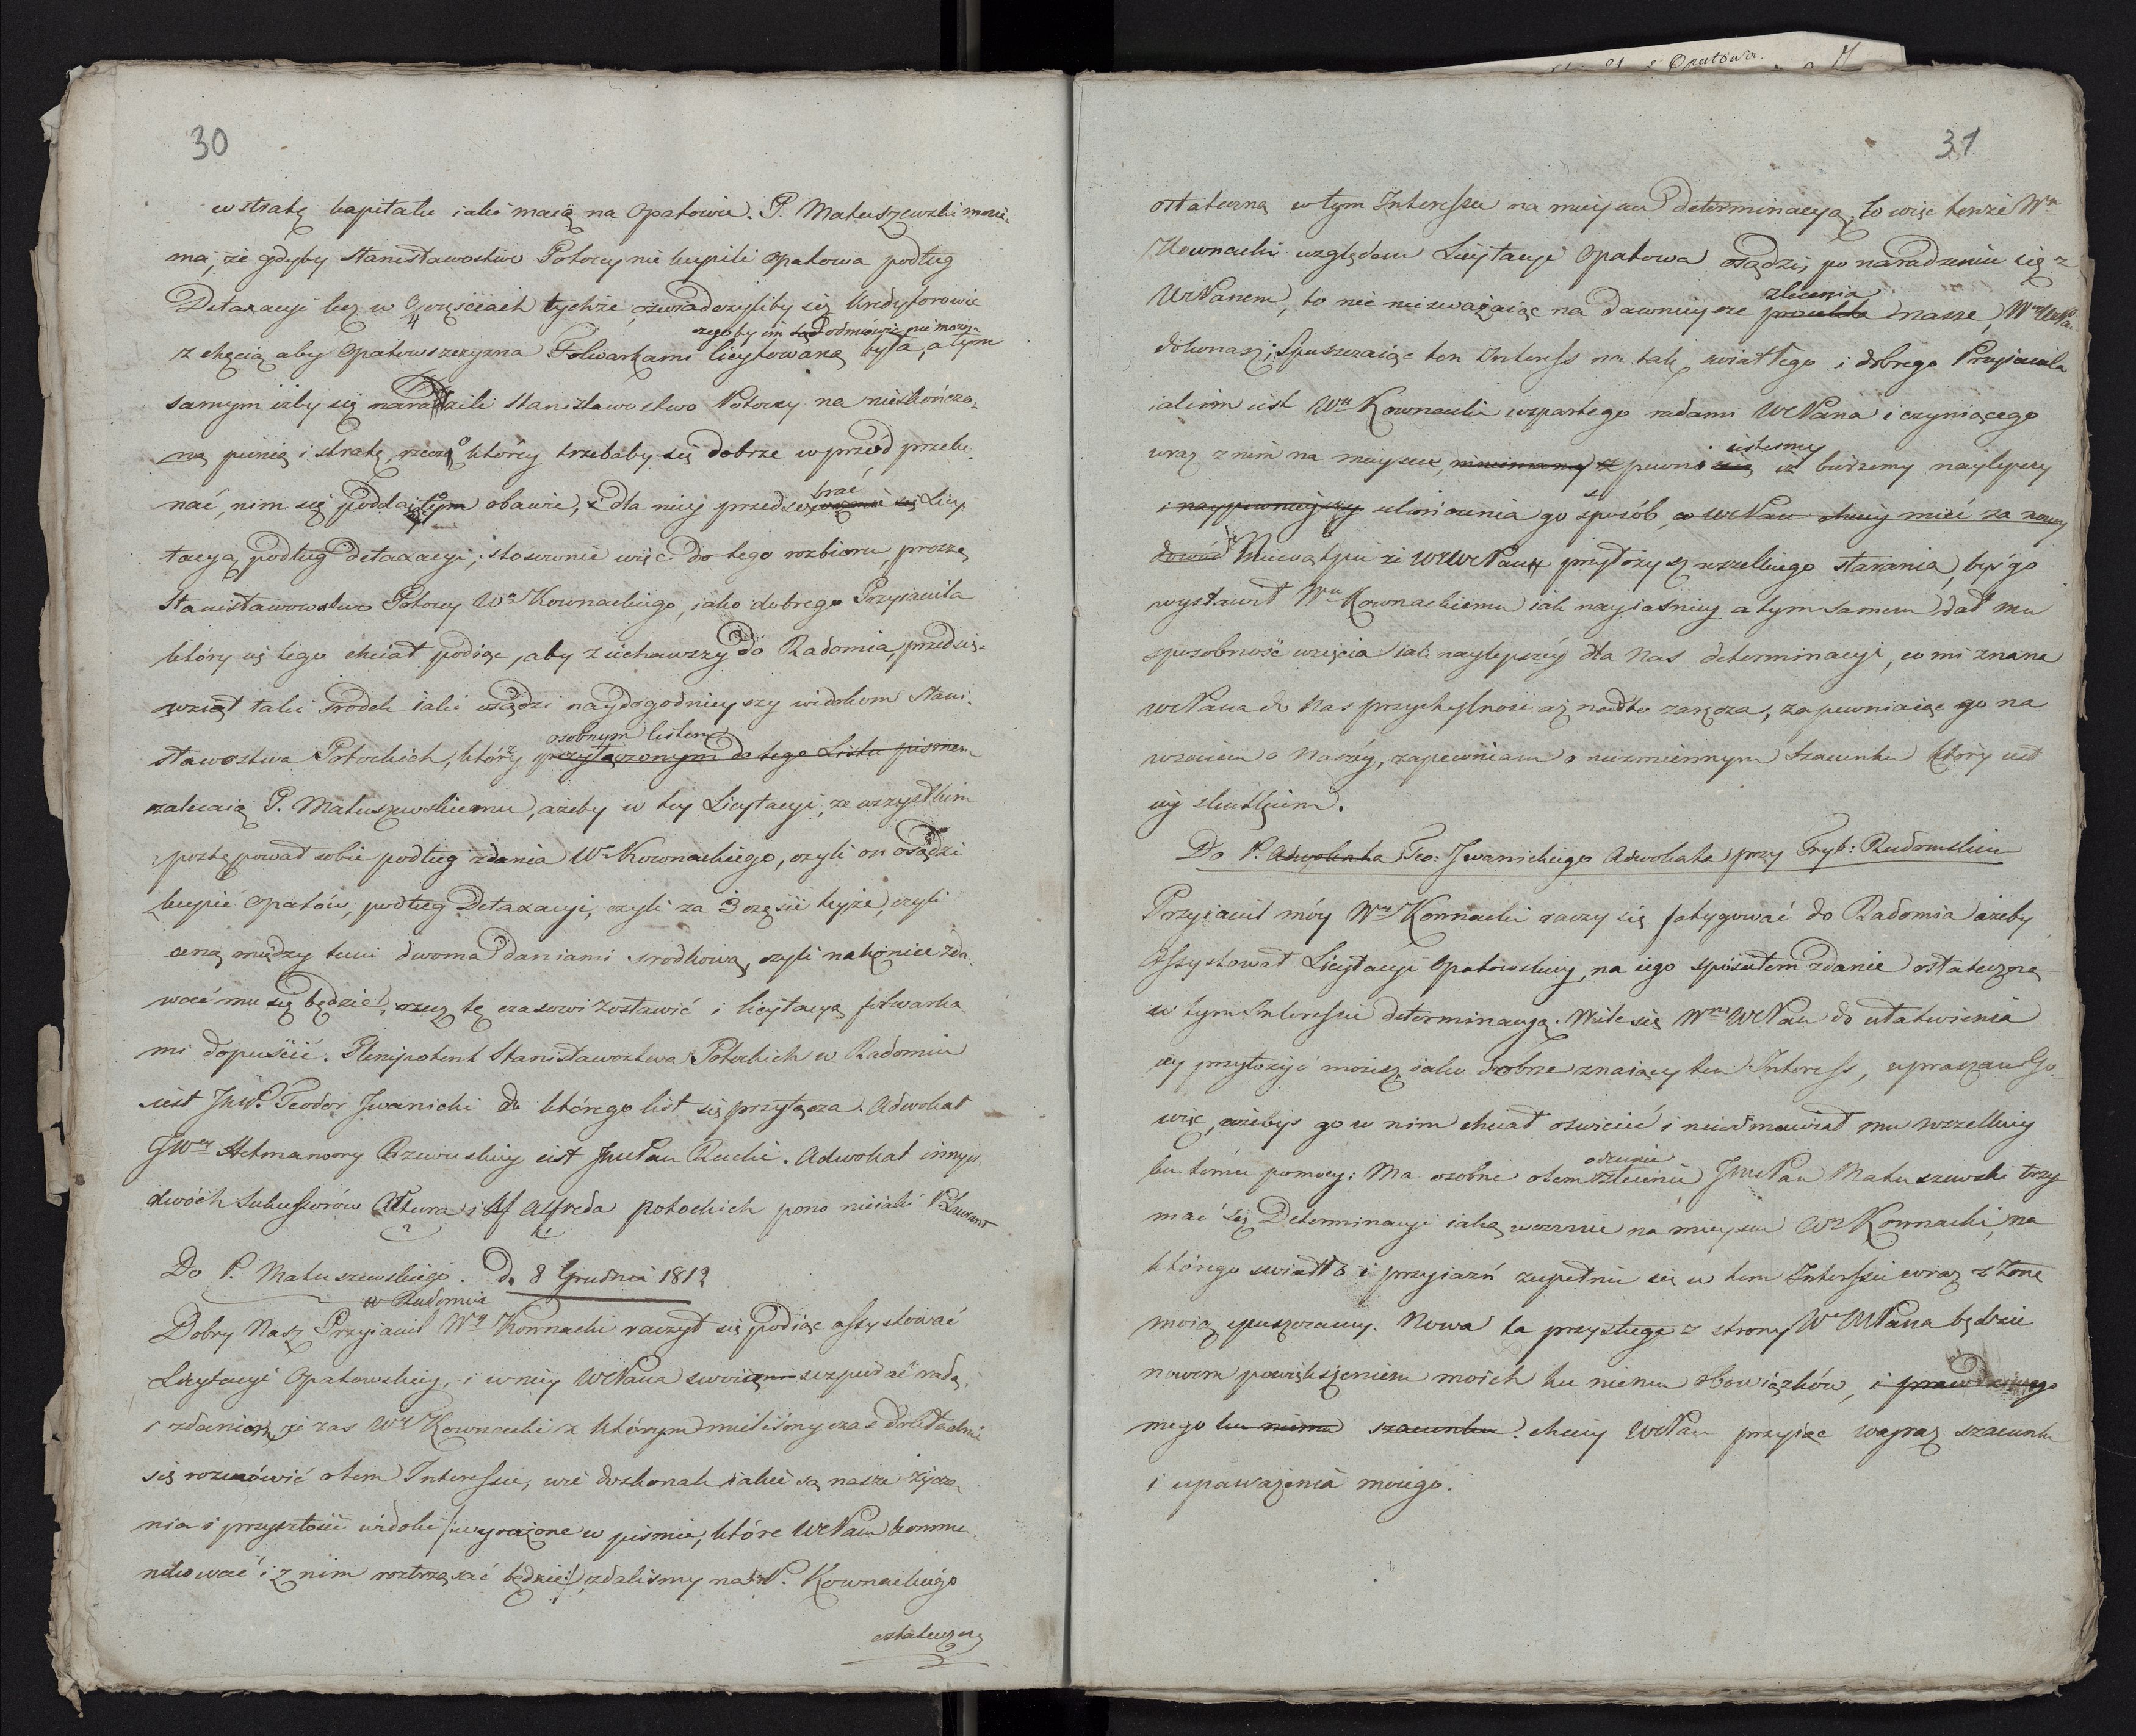 30
w stratę kapitału iaki maią na Opatowie. P. Matuszewski mnie-
ma, że gdyby Stanisławostwo Potoccy nie kupili Opatowa podług
Detaxacyi lecz w częściach tychże, oświadczyliby się kredytorowie
czegoby im odmówić nie można
z chęcią aby Opatowszczyzna Folwarkami licytowaną była, a tym
samym iżby się naradzili Stanisławostwo Potoccy na nieskończo-
ną pienią i stratę, o którey trzebaby się dobrze wprzód przeko-
nać, nim się obawie, i dla niey przedsię brać Licy
tacyą podług detaxacyi; stosownie więc do tego rozbioru, proszą
Stanisławowstwo Potoccy Wo Kownackiego, iako dobrego Przyiaciela
który się tego chciał podiąć, aby ziechawszy do Radomia, przedsię-
wziął taki środek iaki osądzi naydogodnieyszy widokom Stani-
osobnym listem
sławostwa Potockich, którzy przyłączonym do tego Listu pismem
zalecaią P. Matuszewskiemu, ażeby w tey Licytacyi, ze wszystkim
postępował sobie podług zdania Wo Kownackiego, czyli on osądzi
kupić Opatów, podług Detaxacyi, czyli za 3 części teyże, czyli
ceną między temi dwoma daniami srodkową, czyli nakoniec zda-
wać mu się będzie, rzecz tę czasowi zostawić i licytacyą folwarka
mi dopuścić. Plenipotent Stanisławostwa Potockich w Radomiu
iest JmP. Teodor Iwanicki do którego list się przyłącza. Adwokat
JWey Hetmanowy Rzewuskiey iest JmPan Rucki. Adwokat innych
dwóch Sukcessorów Artura i Alfreda Potockich pono nieiaki P.
Do P. Matuszewskiego. D. 8 Grudnia 1812
w Radomiu
Dobry Nasz Przyiaciel Wy Kownacki raczył się podiąć assystować
Licytacyi Opatowskiey, i w niey WcPana swoią wspierać radą
i zdaniem, że zas Wy Kownacki z którym mieliśmy czas dokładnie
się rozmówić o tem Interessie, wie doskonale iakie są nasze życze-
nia i przyszłości widoki /: wyrażone w pismie, które WcPanu kommu-
nikować i z nim roztrząsać będzie :/, zdaliśmy na P. Kownackiego
ostateczną
31
ostateczną w tym Interessie na mieyscu determinacyą; to więc tenże Wy
Kownacki względem Licytacyi Opatowa osądzi, po naradzeniu się z
zlecenia
WcPanem, to nie zważaiąc na dawnieysze nasze, WcPan
dokonasz; Spuszczaiąc ten Interess na tak swiatłego i dobrego Przyiaciela
iakim iest Wy Kownacki wspartego radami WcPana i czyniącego
iestesmy
wraz z nim na mieyscu, pewni iż bierzemy naylepszy
i naypewnieyszy ukończenia go sposób, co WcPan chciey mieć za nowy
dowód Niewątpię że WWcPan przyłożysz wszelkiego starania, byś go
wystawił Wu Kownackiemu iak nayiaśniey a tym samem dał mu
sposobność wzięcia iak naylepszéy dla Nas determinacyi, co mi znana
WcPana do Nas przychylność aż nadto zaręcza, zapewniaiąc go na
wzaiem o Naszéy, zapewniam o niezmiennym szacunku który iest
iey skutkiem.
Do P. Adwokata Teo: Iwanickiego Adwokata przy Tryb: Radomskim
Przyiaciel móy Wy Kownacki raczy się fatygować do Radomia ażeby
Assystował Licytacyi Opatowskiey, na iego spuściłem zdanie ostateczną
w tym Interessie determinacyą. Wiele się WcPan do ułatwienia
iey przyłożyć możesz iako dobrze znaiący ten Interess, upraszam Go
więc, ażebyś go w nim chciał oswiecić i nieodmawiał mu wszelkiey
ku temu pomocy: Ma osobne o tem zlecenie JmcPan Matuszewski trzy-
mać się Determinacyi iaką weźmie na mieyscu Wy Kownacki, na
którego swiatło i przyiaźń zupełnie się w tem Interessie wraz z Żoną
moią spuszczamy. Nowa ta przysługa z strony WcPana będzie
nowem powiększeniem moich ku niemu obowiązków, i prawdziwego
mego ku niemu szacunku. chciey WcPan przyiąć wyraz szacunku
i upoważenia moiego.